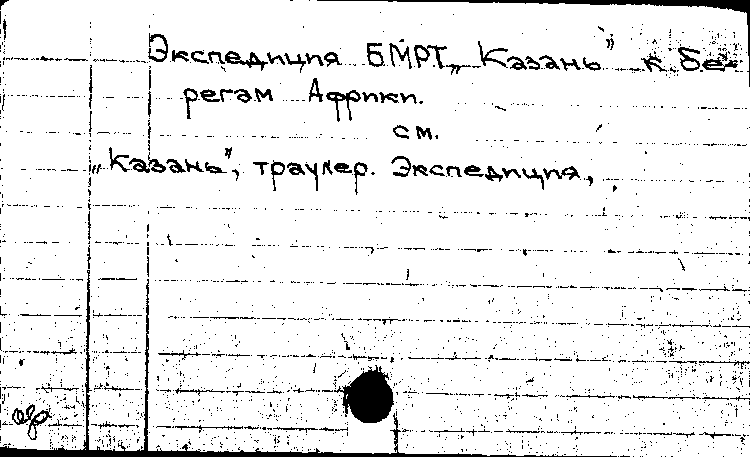 Экспедиция БМРТ „Казань" к бе-
регам Африки.
см.
„Казань", траулер. Экспедиция,